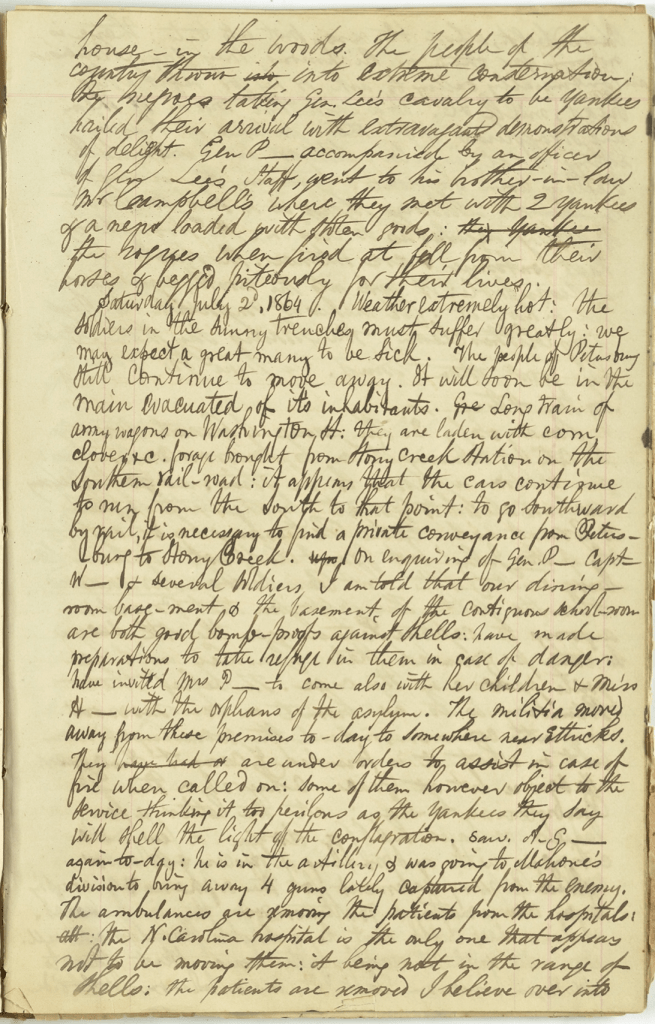 house - in the woods. The people of the
country thrown into into extreme consternation;
the negroes taking Gen. Lee's cavalry to be Yankees
hailed their arrival with extravagant demonstrations
of delight. Gen P — accompanied by an officer
of Gen Lee's Staff, went to his brother-in-law
Mr Campbells where they met with 2 Yankees
& a negro loaded with stolen goods; the Yankee
the rogues when fired at fell from their
horses & begged piteously for their lives.
Saturday July 2d, 1864. Weather extremely hot: the
soldiers in the sunny trenches must suffer greatly: we
may expect a great many to be sick. The people of Petersburg
still continue to move away. It will soon be in the
main evacuated of its inhabitants. Long train of
army wagons on Washington St: they are laden with corn
clover &c. forage brought from Stony Creek Station on the
Southern rail-road: it appears that the cars continue
to run from the South to that point: to go southward
by rail, it is necessary to find a private conveyance from Peters-
burg to Stony Creek. on enquiring of Gen. P — Capt
N — & several soldiers, I am told that our dining-
room base-ment, & the basement of the contiguous school-room
are both good bomb-proofs against shells: have made
preparations to take refuge in them in case of danger:
have invited Mrs P — to come also with her children & Miss
H — with the orphans of the asylum. The militia moved
away from these premises to-day to somewhere near Ettricks.
They have had or are under orders to assist in case of
fire when called on: some of them however object to the
service thinking it too perilous as the Yankees they say
will shell the light of the conflagration. saw. A. G —
again to-day: he is in the artillery & was going to Mahone's
division to bring away 4 guns lately captured from the enemy.
The ambulances are moving the patients from the hospitals:
all: the N. Carolina hospital is the only one that appears
not to be moving them: it being not in the range of
shells: the patients are removed I believe over into